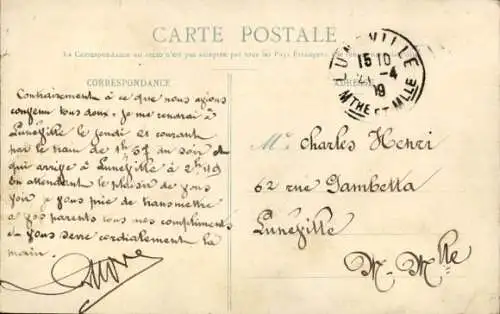 CARTE POSTALE
La Correspondance au recto n'est pas acceptée par tous les Pays Étrangers.
CORRESPONDANCE
ADRESSE
LUNÉVILLE
15 10
2 -4
09
MTHE ET MLLE
Contrairement à ce que nous avions
convenu tous deux. Je me rendrai à
Lunéville le jeudi et courant
par le train de 1h 57 du soir et
qui arrive à Lunéville à 2h 19
En attendant le plaisir de vous
voir je vous prie de transmettre
à vos parents tous mes compliments
et vous serre cordialement la
main.
Mr Charles Henri
62 rue Gambetta
Lunéville
M. Mlle